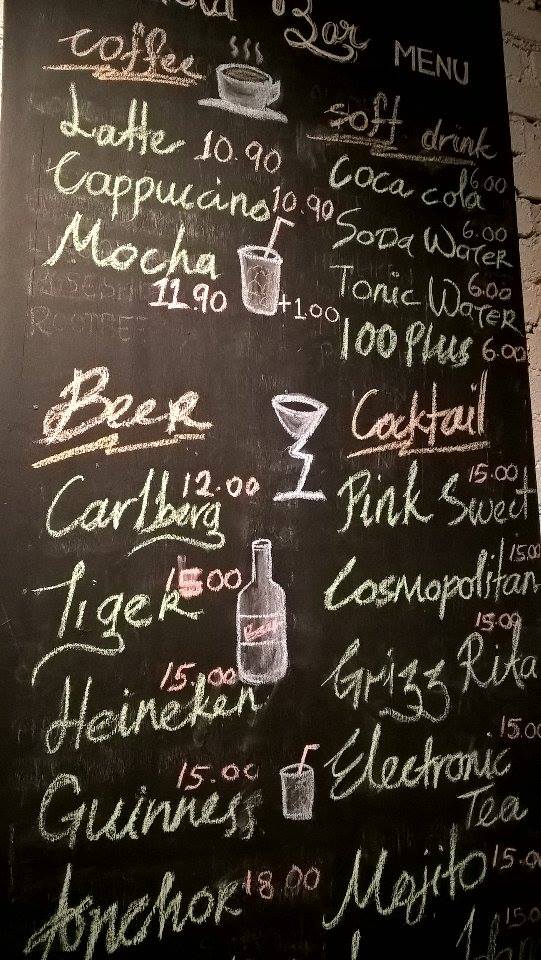 Bar MENU
Coffee
Latte 10.90
Cappucino 10.90
Mocha
11.90
+1.00
Soft drink
Coca cola 6.00
Soda Water 6.00
Tonic Water 6.00
100 Plus 6.00
Beer
Carlberg 12.00
Tiger 15.00
Heineken 15.00
Guinness 15.00
Anchor 18.00
Cocktail
Pink Sweet 15.00
Cosmopolitan 15.00
Grizz Rita 15.00
Electronic 15.00
Tea
Mojito 15.0
15.0